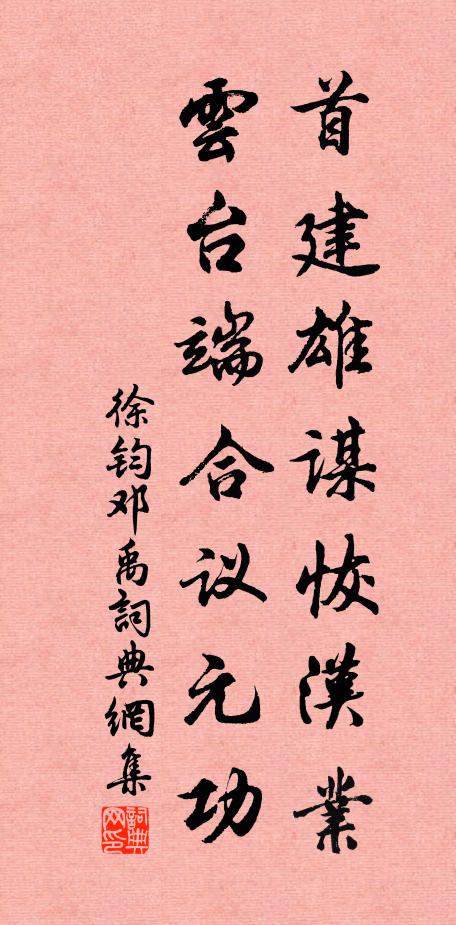 首建雄谋恢漢業
雲台端合议元功
徐钧邓禹詞典網集
詞典网印